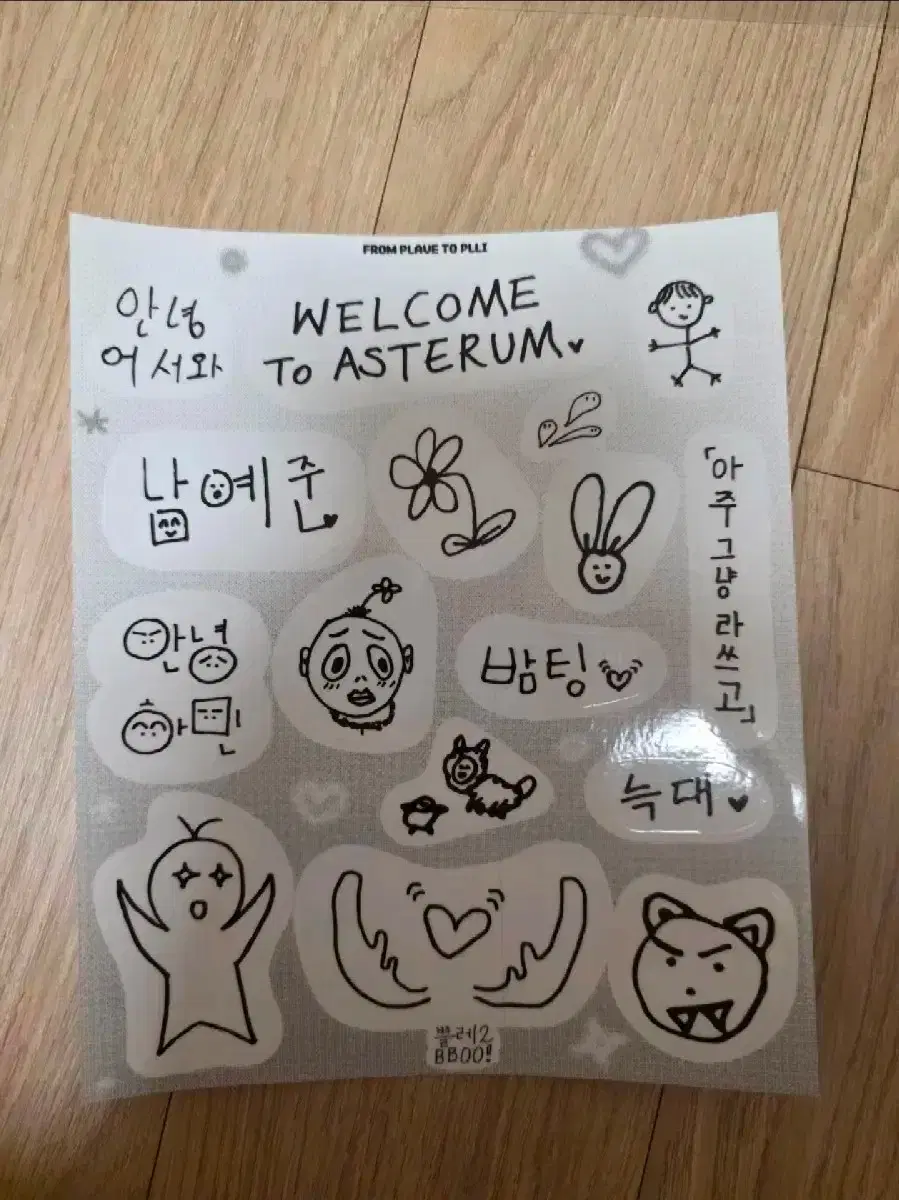 FROM PLAVE TO PLLI
안녕
어서와
WELCOME
TO ASTERUM
남예준
「아주그냥라쓰고」
안녕
하민
밤팅
늑대
뿔레2
BBOO!